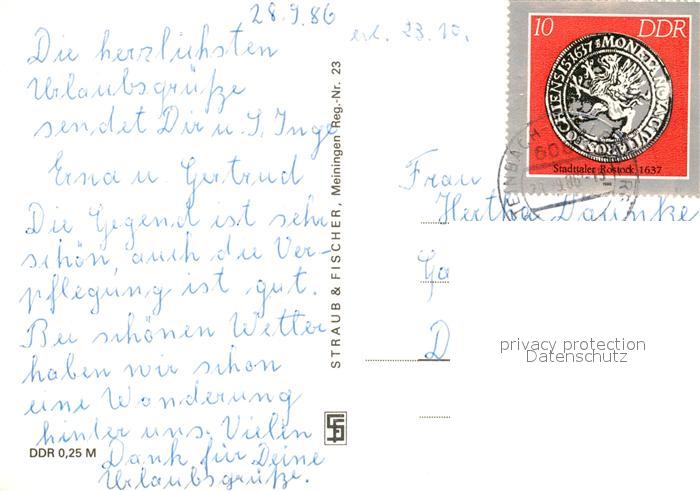 28.9.86
Die herzlichsten
Urlaubsgrüße
sendet Dir u. I, Inge
Erna u Gertrud
Die Gegend ist sehr
schön, auch die Ver-
pflegung ist gut.
Bei schönen Wetter
haben wir schon
eine Wanderung
hinter uns. Vielen
Dank für Deine
Urlaubsgrüße.
DDR 0,25 M
STRAUB & FISCHER, Meiningen Reg.-Nr. 23
erl. 23.10.
10 DDR
MONETA NO
1637
Stadttaler Rostock 1637
1986
Frau
Hertha
Ga
D
privacy protection
Datenschutz